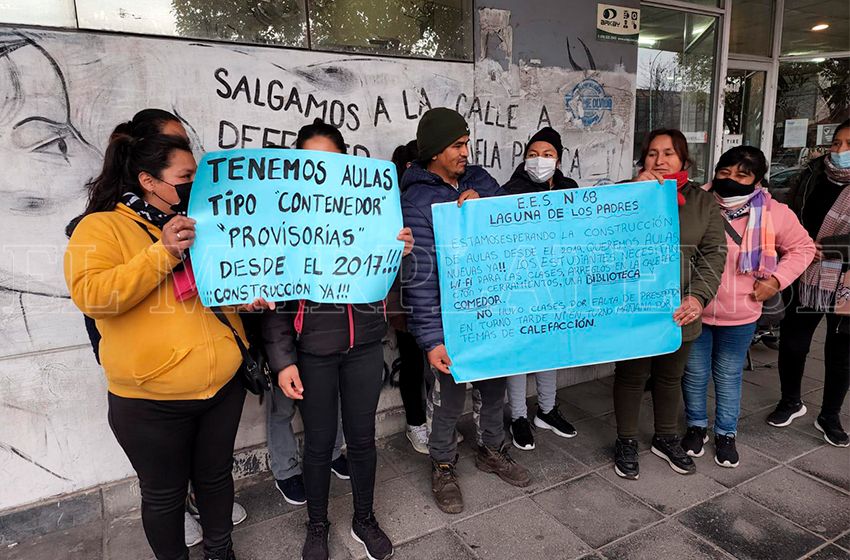 SALGAMOS A LA CALLE A
TENEMOS AULAS
TIPO "CONTENEDOR"
"PROVISORIAS"
DESDE EL 2017!!!
¡¡¡CONSTRUCCIÓN YA!!!
E.E.S. Nº 68
LAGUNA DE LOS PADRES
ESTAMOS ESPERANDO LA CONSTRUCCIÓN
DE AULAS DESDE EL 2019. QUEREMOS AULAS
NUEVAS YA!! LOS ESTUDIANTES NECESITAN
WI-FI PARA LAS CLASES, ARREGLOS EN LA CALEFAC-
CIÓN Y CERRAMIENTOS, UNA BIBLIOTECA
COMEDOR.
NO HUVO CLASES POR FALTA DE
EN TURNO TARDE NI EN TURNO MAÑANA POR
TEMAS DE CALEFACCIÓN.
EL MARPLATENSE